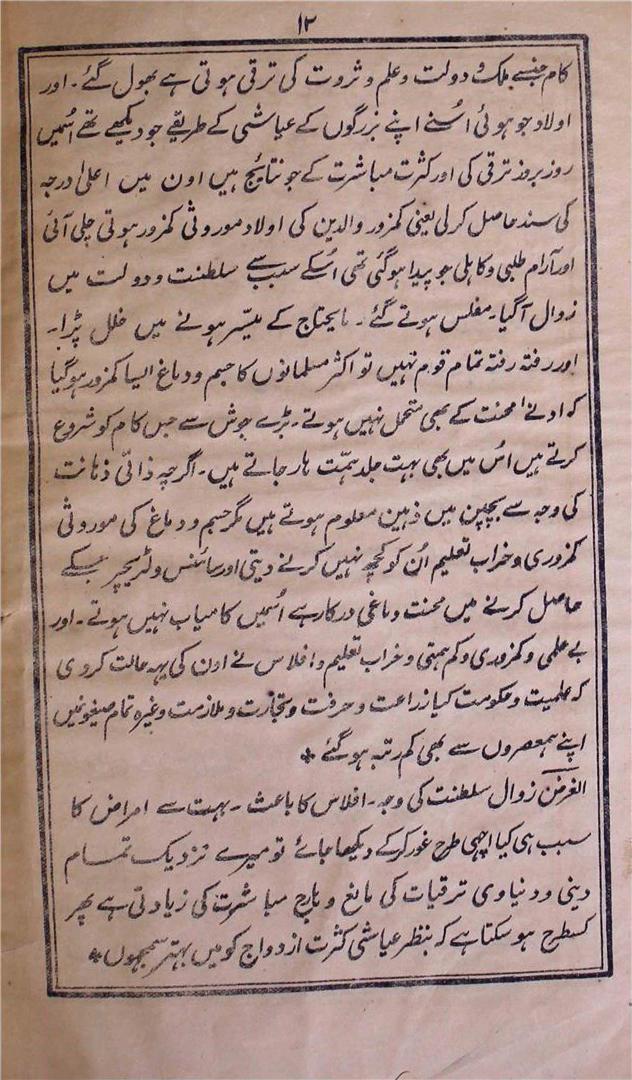 ۱۲
کام جنسے ملک و دولت و علم و ثروت کی ترقی ہوتی ہے بھول گئے۔ اور
اولاد جو ہوئی اُسنے اپنے بزرگوں کے عیاشی کے طریقے جو دیکھے تھے اُسمیں
روز بروز ترقی کی اور کثرت مباشرت کے جو نتایج ہیں اون میں اعلیٰ درجہ
کی سند حاصل کرلی یعنی کمزور والدین کی اولاد موروثی کمزور ہوتی چلی آئی
اور آرام طلبی و کاہلی جو پیدا ہوگئی تھی اُسکے سبب سے سلطنت و دولت میں
زوال آگیا۔ مفلس ہوتے گئے۔ مایحتاج کے میسّر ہونے میں خلل پڑا۔
اور رفتہ رفتہ تمام قوم نہیں تو اکثر مسلمانوں کا جسم و دماغ ایسا کمزور ہوگیا
کہ ادنےٰ محنت کے بھی متحمل نہیں ہوتے۔ بڑے جوش سے جس کام کو شروع
کرتے ہیں اُس میں بھی بہت جلد ہمّت ہار جاتے ہیں۔ اگرچہ ذاتی ذہانت
کی وجہ سے بچپن میں ذہین معلوم ہوتے ہیں مگر جسم و دماغ کی موروثی
کمزوری و خراب تعلیم اُن کو کچھ نہیں کرنے دیتی اور سائنس و لٹریچر جسکے
حاصل کرنے میں محنت دماغی درکار ہے اُسمیں کامیاب نہیں ہوتے۔ اور
بے علمی و کمزوری و کم ہمتی و خراب تعلیم و افلاس نے اون کی یہہ حالت کردی
کہ علمیت و حکومت کیا زراعت و حرفت و تجارت و ملازمت وغیرہ تمام صیغونمیں
اپنے ہمعصروں سے بھی کم رتبہ ہوگئے *
الغرض زوال سلطنت کی وجہ۔ افلاس کا باعث۔ بہت سے امراض کا
سبب ہی کیا اچھی طرح غور کرکے دیکھا جائے تو میرے نزدیک تمام
دینی و دنیاوی ترقیات کی مانع و ہارج مباشرت کی زیادتی ہے پھر
کسطرح ہوسکتا ہے کہ بنظر عیاشی کثرت ازدواج کو میں بہتر سمجھوں *